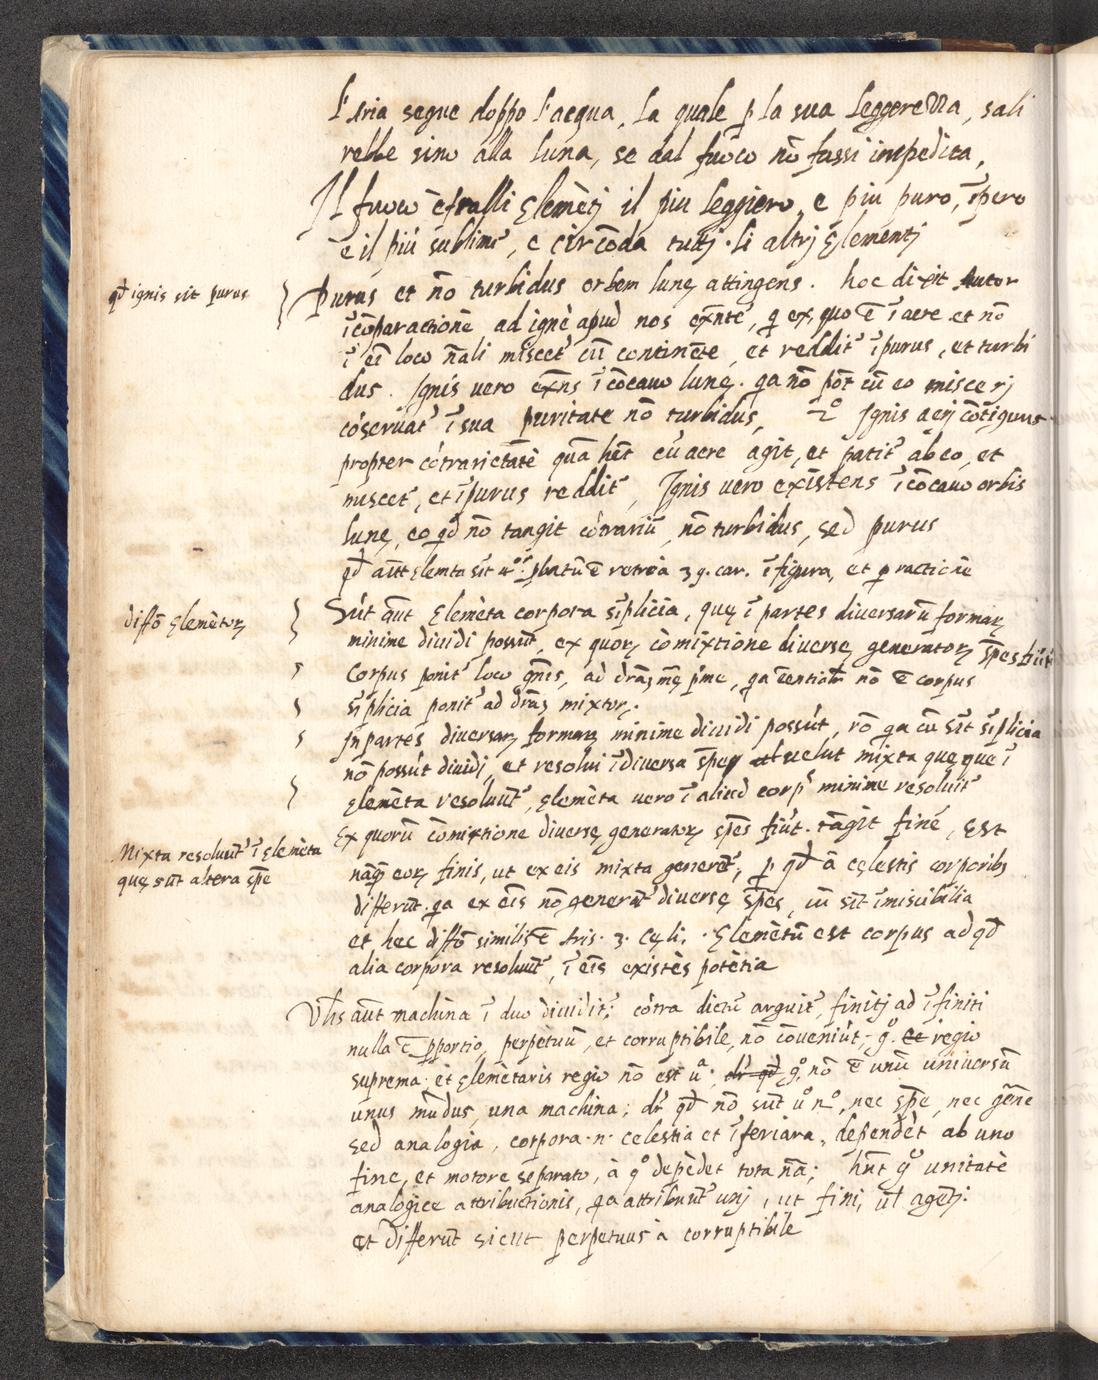 l'Aria segue doppo l'acqua, la quale p la sua leggerezza, sali
rebbe sino alla luna, se dal fuoco nō fussi impedita,
Il fuoco è fralli Elemētj il piu leggiero, e piu puro, īpero
è il più sublime, e circōda tuttj li altrj Elementj
qđ ignis sit purus
Purus et nō turbidus orbem lunę attingens. hoc dixit Autor
īcōparactionē ad ignē apud nos exn̄te, q ex quo ē ī aere et nō
ī eī loco nāli miscet' cū continēte, et reddit' īpurus, et turbi
dus. Ignis uero exn̄s ī cōcauo lunę. qa nō pōt cū eo miscerj
cōseruat' ī sua puritate nō turbidus, 2° Ignis aerj cōtiguus
propter cōtrarietatē quā hēt cū aere agit, et patit' ab eo, et
miscet', et īpurus reddit', Ignis uero existens ī cōcauo orbis
lunę, eo qđ nō tangit cōtrariū, nō turbidus, sed purus
qđ aūt Elemta sīt 4or pbatū ē retro à 39. car. ī figura, et practicīe
diffō Elemētorȝ
Sūt aūt Elemēta corpora sīplicia, quę ī partes diuersarū formarȝ
minime diuidi possūt, ex quorȝ cōmixtione diuersę generatorȝ sp̄es fiūt
Corpus ponit' loco gn̄is, ad drāȝ mę pīme, qa ē nō ē corpus
sīplicia ponit' ad drāȝ mixtorȝ.
In partes diuersarȝ formarȝ minime diuidi possūt, rō qa cū sīt sīplicia
nō possūt diuidi, et resolui ī diuersa sp̄e ueluti mixta quę ī
Elemēta resoluūt', Elemēta uero ī aliud corps minime resoluūt'
Mixta resoluūt' ī Elemēta
quę sūt altera sp̄e
Ex quorū cōmixtione diuersę generatorȝ sp̄es fiūt. tāgit finē, Est
nāqȝ eorȝ finis, ut ex eis mixta generēt', p qđ ā cęlestis corporibs
differūt. qa ex eīs nō generāt' diuersę sp̄es, cū sīt īmiscibilia
et hec diffō similis ē Aris. 3. Cęli. Elemētū est corpus ad qđ
alia corpora resoluūt', ī eīs existēs potētia
Vlis aūt machina ī duo diuidit'. cōtra dictū arguit', finitj ad īfiniti
nulla ē pportio, perpetuū, et corruptibile, nō cōueniūt, g°. regio
suprema, et Elemētaris regio nō est ua; g° nō ē unū uniuersū
unus mūdus, una machina; dr qđ nō sūt u° n°, nec sp̄e, nec gēne
sed analogia, corpora .n. celestia et īferiora, depēdēt ab uno
fine, et motore separato, à q° depēdet tota nā; hn̄t g° unitatē
analogice attributionis, qa attribuūt' unj, ut fini, ul agētj.
et differūt sicut perpetuus à corruptibile